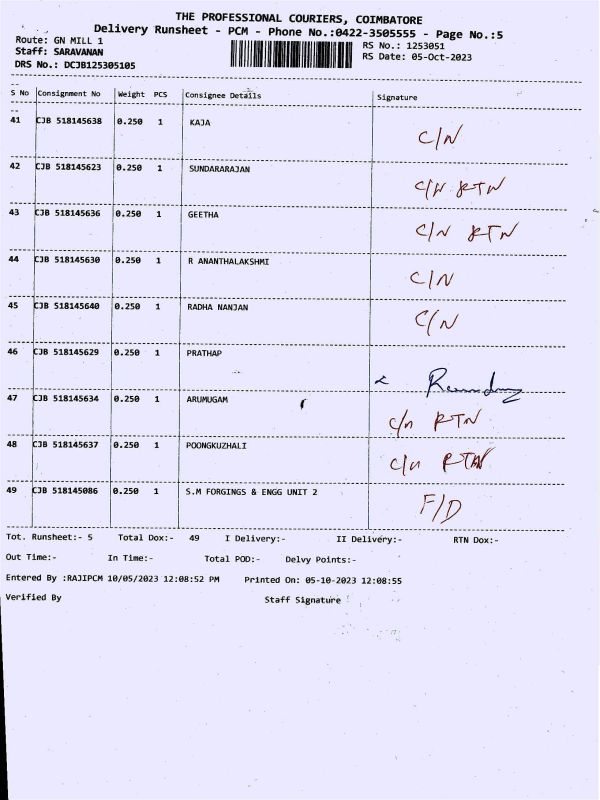 THE PROFESSIONAL COURIERS, COIMBATORE
Delivery Runsheet - PCM - Phone No.:0422-3505555 - Page No.:5
Route: GN MILL 1
Staff: SARAVANAN
DRS No.: DCJB125305105
RS No.: 1253051
RS Date: 05-Oct-2023
S No Consignment No Weight PCS Consignee Details Signature
41 CJB 518145638 0.250 1 KAJA C/N
42 CJB 518145623 0.250 1 SUNDARARAJAN C/N RTN
43 CJB 518145636 0.250 1 GEETHA C/N RTN
44 CJB 518145630 0.250 1 R ANANTHALAKSHMI C/N
45 CJB 518145640 0.250 1 RADHA NANJAN C/N
46 CJB 518145629 0.250 1 PRATHAP
47 CJB 518145634 0.250 1 ARUMUGAM C/n RTN
48 CJB 518145637 0.250 1 POONGKUZHALI C/n RTN
49 CJB 518145086 0.250 1 S.M FORGINGS & ENGG UNIT 2 F/D
Tot. Runsheet:- 5 Total Dox:- 49 I Delivery:- II Delivery:- RTN Dox:-
Out Time:- In Time:- Total POD:- Delvy Points:-
Entered By :RAJIPCM 10/05/2023 12:08:52 PM Printed On: 05-10-2023 12:08:55
Verified By Staff Signature